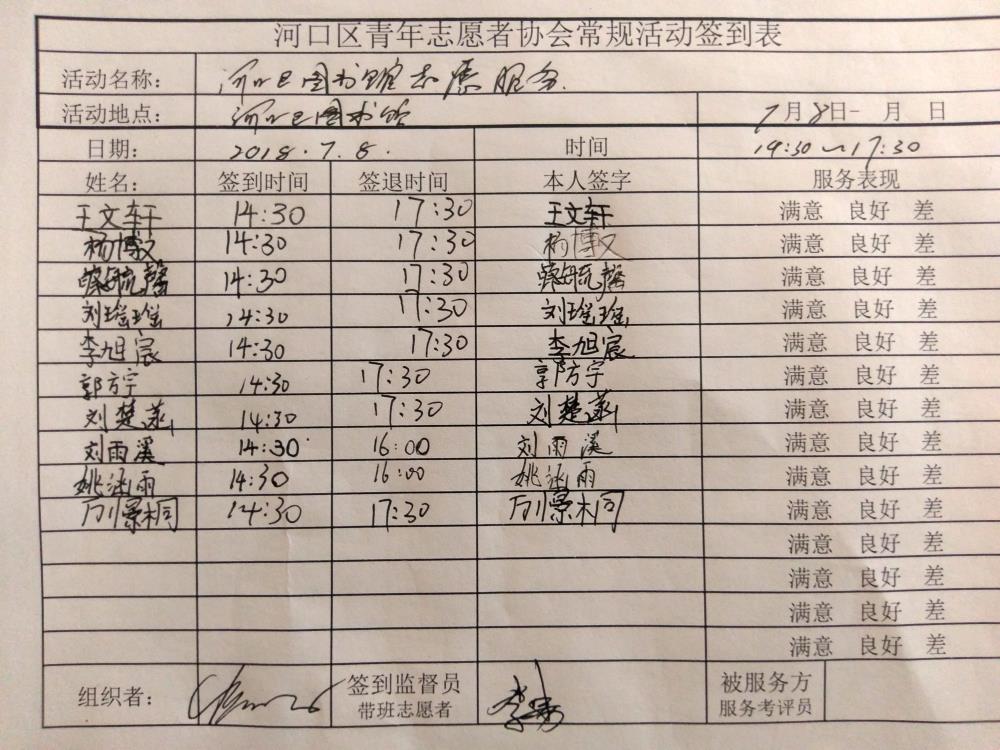 河口区青年志愿者协会常规活动签到表
活动名称： 河口区图书馆志愿服务
活动地点： 河口区图书馆 7月8日- 月 日
日期： 2018.7.8. 时间 14:30~17:30
姓名： 签到时间 签退时间 本人签字 服务表现
王文轩 14:30 17:30 王文轩 满意 良好 差
杨博汉 14:30 17:30 杨博汉 满意 良好 差
14:30 17:30 满意 良好 差
刘瑶瑶 14:30 17:30 刘瑶瑶 满意 良好 差
李旭宸 14:30 17:30 李旭宸 满意 良好 差
郭方宇 14:30 17:30 郭方宇 满意 良好 差
刘楚涵 14:30 17:30 刘楚涵 满意 良好 差
刘雨溪 14:30 16:00 刘雨溪 满意 良好 差
姚涵雨 14:30 16:00 姚涵雨 满意 良好 差
景桐 14:30 17:30 景桐 满意 良好 差
满意 良好 差
满意 良好 差
满意 良好 差
满意 良好 差
组织者： 签到监督员 被服务方
带班志愿者 服务考评员